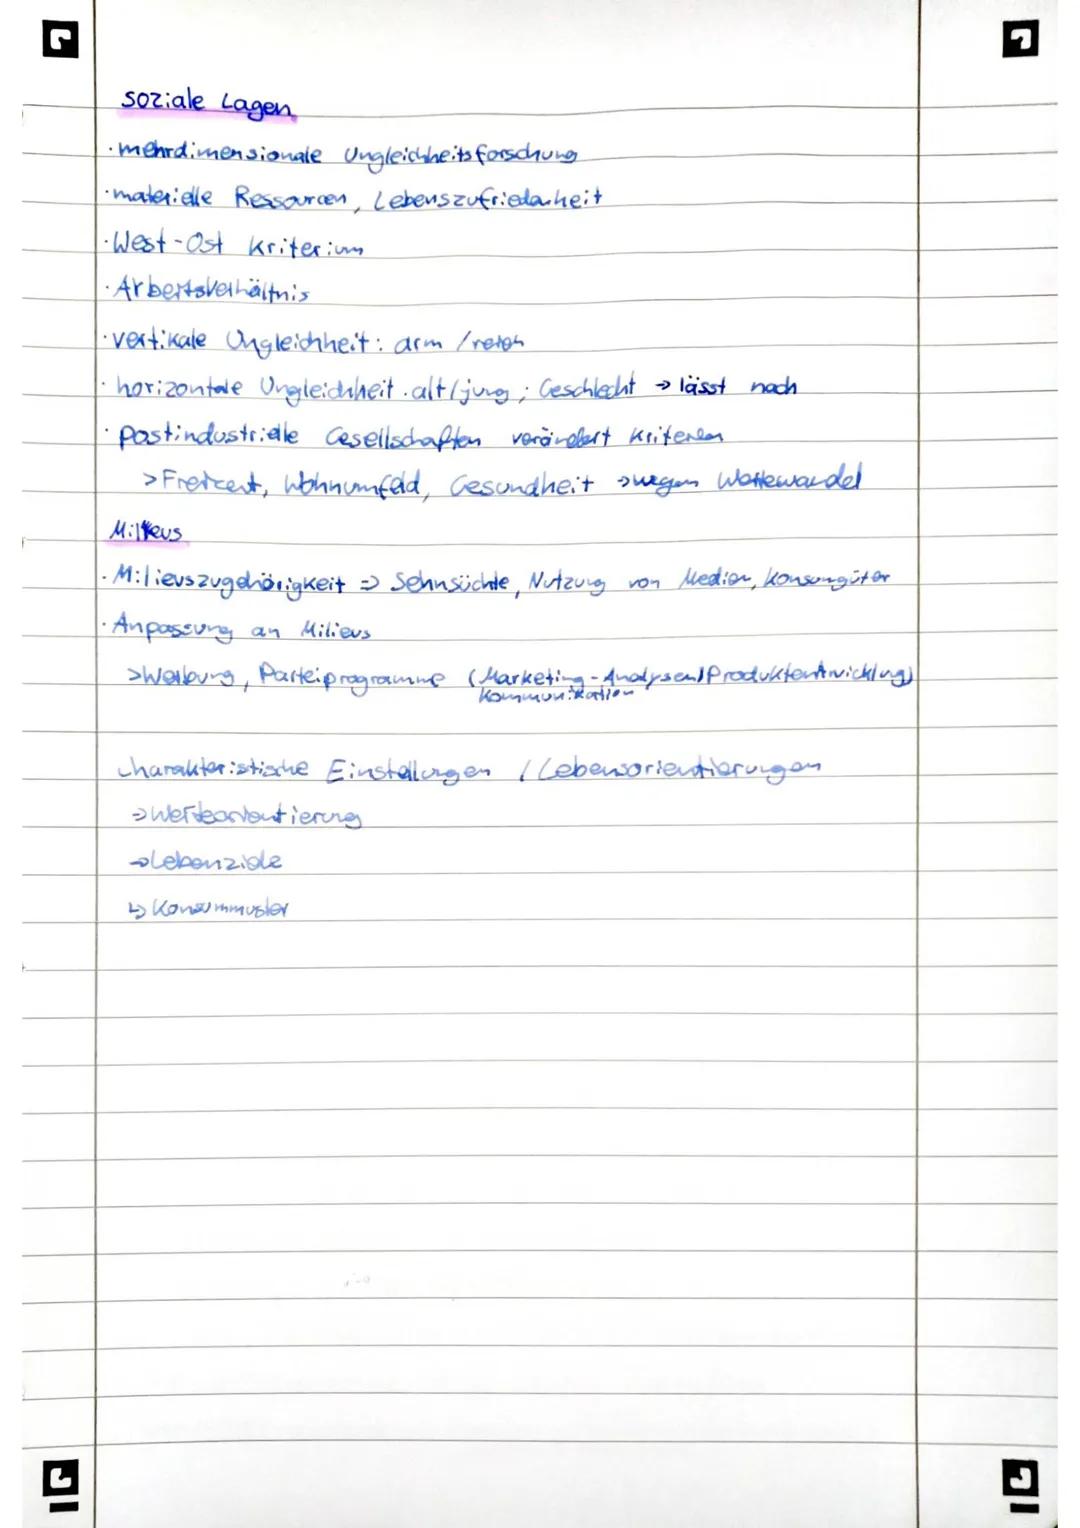 soziale Lagen
· mehrdimensionale Ungleichheitsforschung
· materielle Ressourcen, Lebenszufriedenheit
· West-Ost Kriterium
· Arbeitsverhältnis
· vertikale Ungleichheit: arm / reich
· horizontale Ungleichheit. alt/jung; Geschlecht → lässt nach
· postindustrielle Gesellschaften verändert Kriterien
> Freizeit, Wohnumfeld, Gesundheit → wegen Wertewandel
Milieus
· Milieuszugehörigkeit => Sehnsüchte, Nutzung von Medien, Konsumgüter
· Anpassung an Milieus
> Werbung, Parteiprogramme (Marketing-Analysen/Produktentwicklung)
Kommunikation
charakteristische Einstellungen / Lebensorientierungen
→ Werteorientierung
→ Lebenziele
↳ Konsummuster